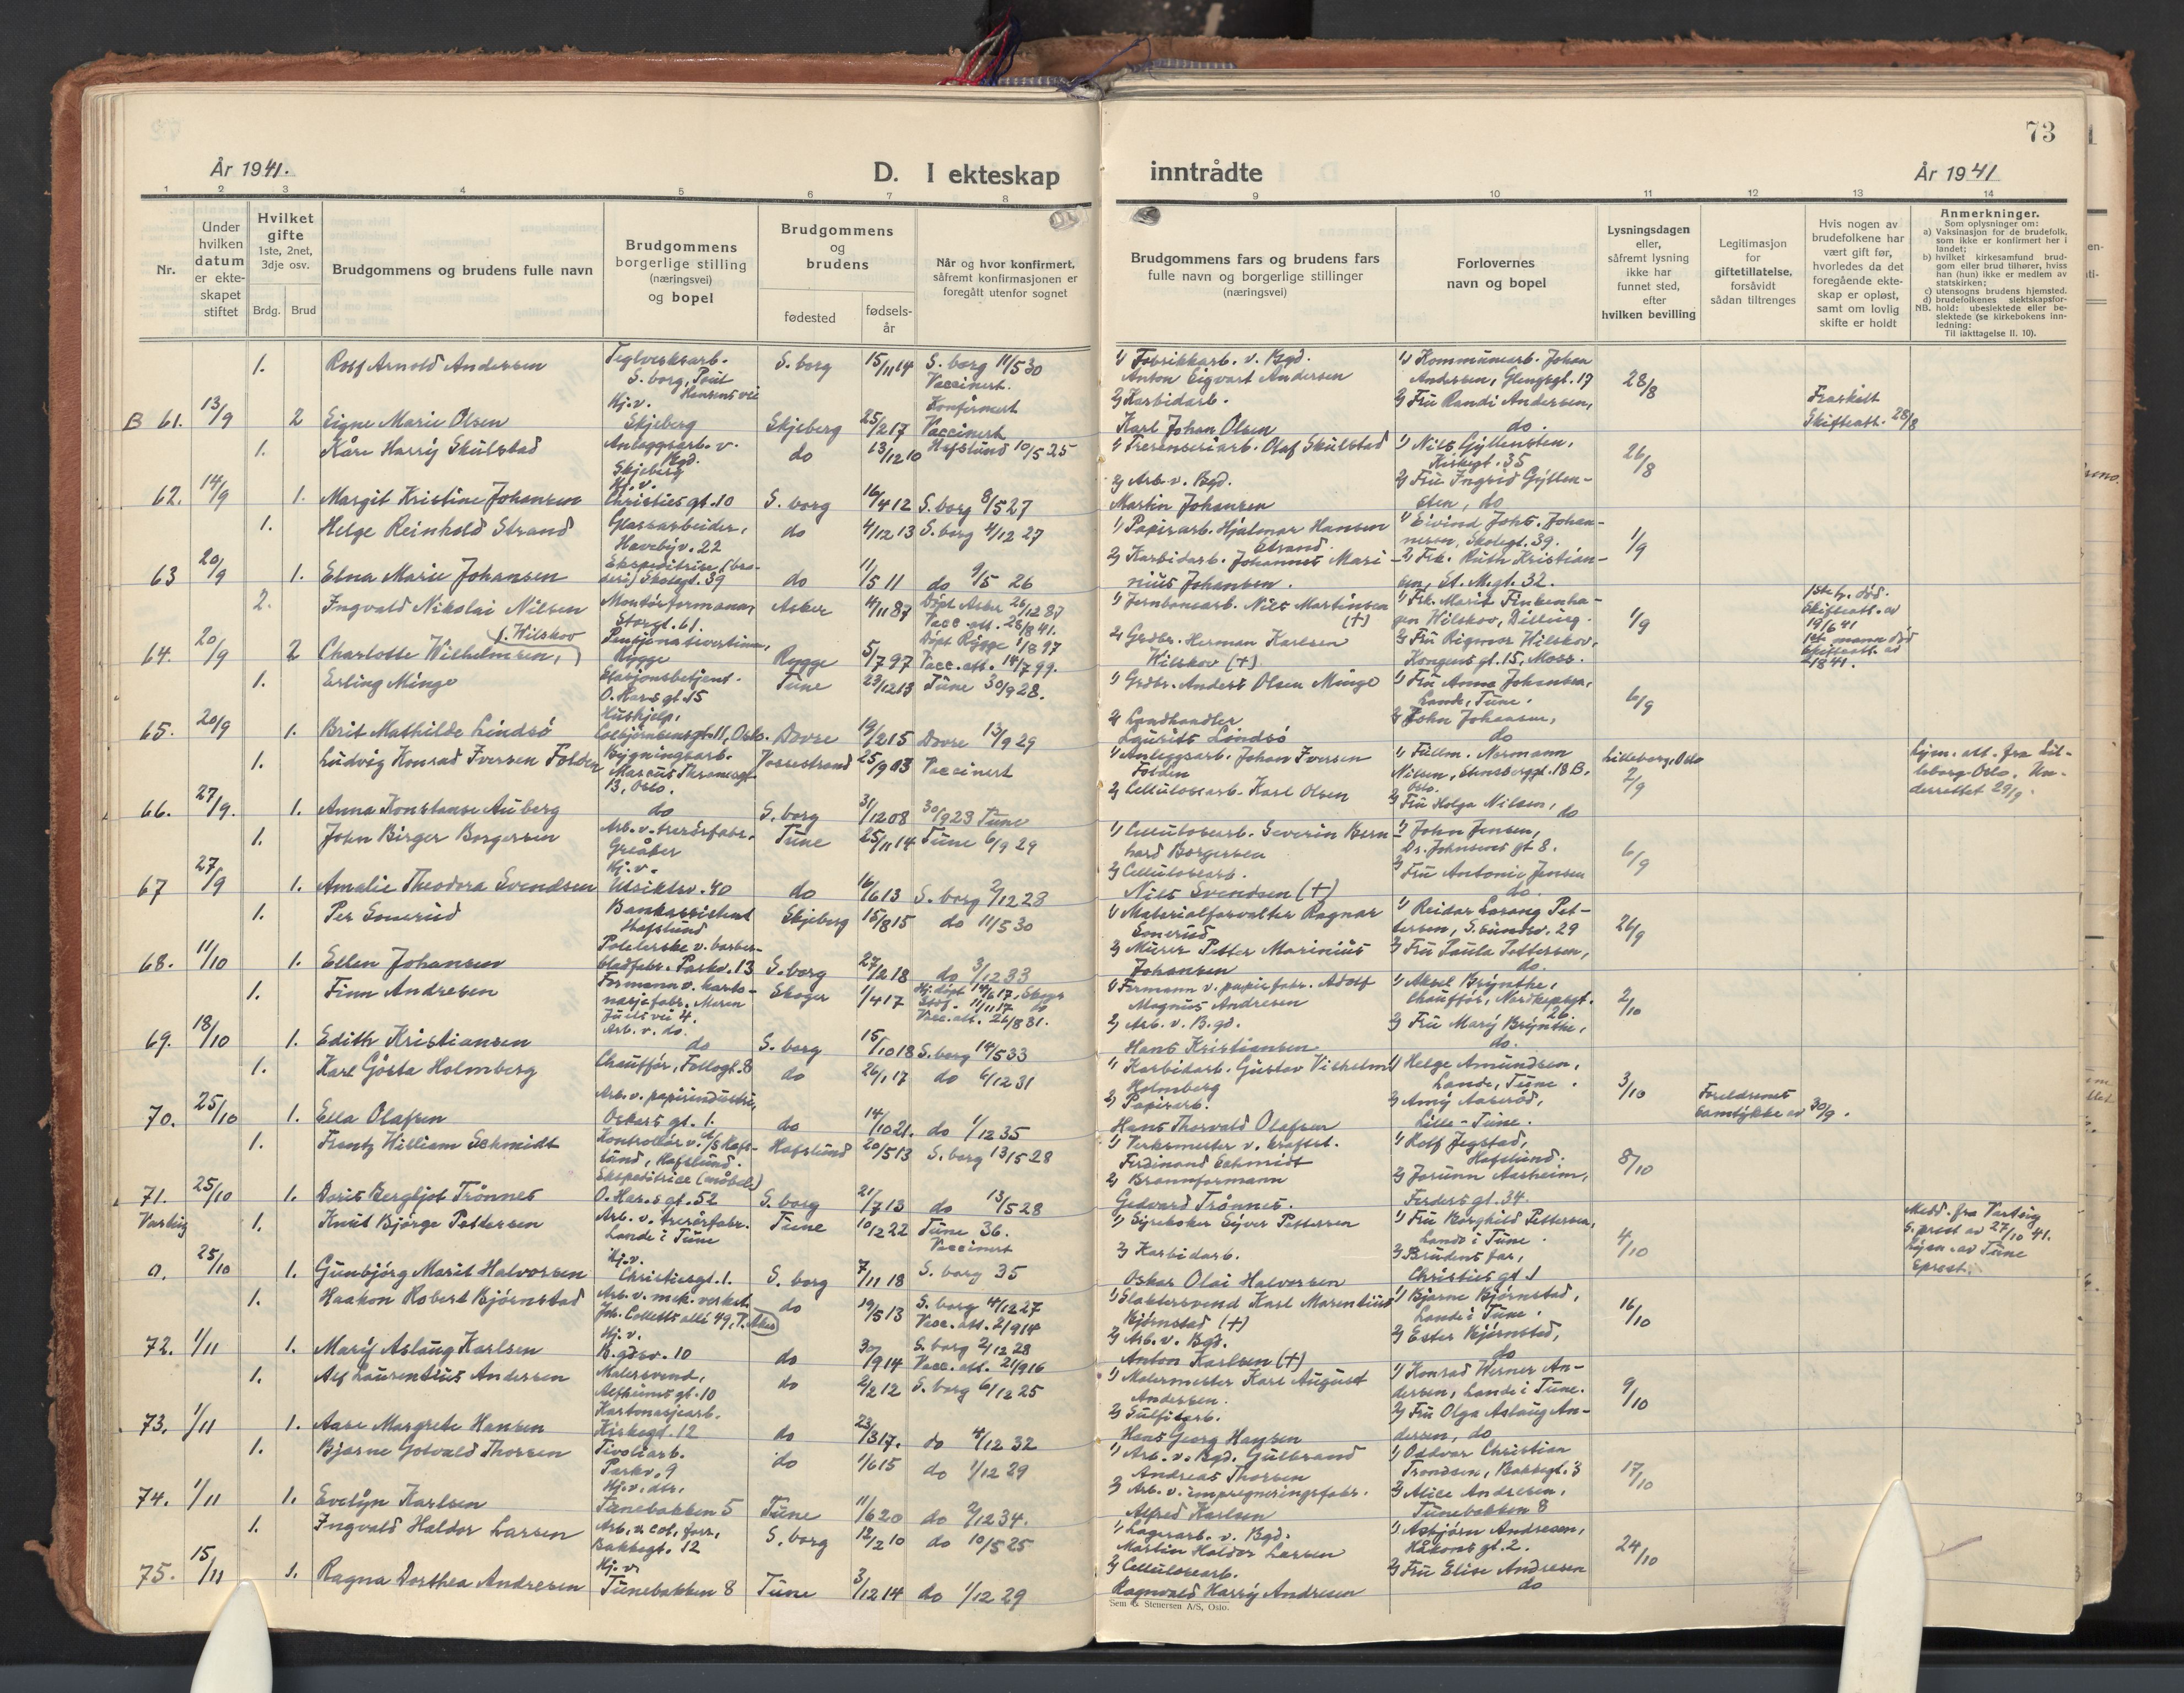 73
År 1941.
D. I ekteskap
inntrådte
År 1941
1 2 3 4 5 6 7 8
9 10 11 12 13 14
Nr.
Under hvilken datum er ekte-skapet stiftet
Hvilket gifte
1ste, 2net, 3dje osv.
Brdg. Brud
Brudgommens og brudens fulle navn
Brudgommens borgerlige stilling (næringsvei) og bopel
Brudgommens og brudens
fødested
fødsels-år
Når og hvor konfirmert, såfremt konfirmasjonen er foregått utenfor sognet
Brudgommens fars og brudens fars fulle navn og borgerlige stillinger (næringsvei)
Forlovernes navn og bopel
Lysningsdagen eller, såfremt lysning ikke har funnet sted, efter hvilken bevilling
Legitimasjon for giftetillatelse, forsåvidt sådan tiltrenges
Hvis nogen av brudefolkene har vært gift før, hvorledes da det foregående ekte-skap er opløst, samt om lovlig skifte er holdt
Anmerkninger.
Som oplysninger om:
a) Vaksinasjon for de brudefolk, som ikke er konfirmert her i landet;
b) hvilket kirkesamfund brud-gom eller brud tilhører, hviss han (hun) ikke er medlem av statskirken;
c) utensogns brudens hjemsted.
d) brudefolkenes slektskapsfor-hold: ubeslektede eller be-slektede (se kirkebokens inn-ledning:
NB. Til iakttagelse II. 10).
1. Rolf Arnold Andersen Teglverksarb. S. borg, Poul Hansens vei S. borg 15/11 14 S. borg 11/5 30 Vaccinert. 1) Fabrikkarb. v. Bgd. Anton Sigvart Andersen 1) Kommunearb. Johan Andersen, Glengsgt. 17 28/8
B 61. 13/9 2 Signe Marie Olsen Hj.v. Skjeberg Skjeberg 25/2 17 Konfirmert Vaccinert 2) Karbidarb. Karl Johan Olsen 2) Fru Randi Andersen, do. Fraskilt Skifteatt. 28/8
1. Kåre Harry Skulstad Anleggsarb. v. Bgd. Skjeberg do 13/12 10 Hafslund 10/5 25 1) Tresenseriarb. Olaf Skulstad 1) Nils Gyllensten, Kirkegt. 35 26/8
62. 14/9 1. Margit Kristine Johansen Hj.v. Christies gt. 10 S. borg 16/4 12 S. borg 8/5 27 2) Arb. v. Bgd. Martin Johansen 2) Fru Ingrid Gyllen-sten, do
1. Helge Reinhold Strand Glassarbeider, Havebyv. 22 do 4/12 13 S. borg 4/12 27 1) Papirarb. Hjalmar Hansen Strand. 1) Eivind Johs. Johan-nesen, Skolegt. 39. 1/9
63 20/9 1. Elna Marie Johansen Ekspeditrise (bro-deri) Skolegt. 39 do 11/5 11 do 9/5 26 2) Karbidarb. Johannes Mari-nius Johansen. 2) Frk. Ruth Kristian-sen, St. M.gt. 32.
2. Ingvald Nikolai Nilsen Montørformann, Storgt. 61. Asker 4/11 87 Døpt Asker 26/12 87 Vacc. att. 28/8 41. 1) Jernbanearb. Nils Martinsen (+) 1) Frk. Marit Finkenha-gen Wilskov, Dilling. 1/9 1ste h. død. Skifteatt. av 19/6 41
64. 20/9 2 Charlotte Wilhelmsen, f. Wilskov Pensjonatvertinne, Rygge Rygge 5/7 97 Døpt Rygge 1/8 97 Vacc. att. 14/7 99. 2) Grdbr. Herman Karlsen Wilskov (+) 2) Fru Rigmor Wilskov, Kongens gt. 15, Moss. 1ste mann død Skifteatt. av 2/8 41.
1. Erling Minge Stasjonsbetjent. O. Har.s gt. 15 Tune 23/12 13 Tune 30/9 28. 1) Grdbr. Anders Olsen Minge 1) Fru Anna Johansen, Lande, Tune. 6/9
65. 20/9 1. Brit Mathilde Lindsø Hushjelp, Torbjørnsensgt. 11, Oslo. Dovre 19/2 15 Dovre 13/9 29 2) Landhandler Laurits Lindsø 2) John Johansen, do
1. Ludvig Konrad Iversen Folden Bygningsarb. Marcus Thranesgt. 13, Oslo. Jossestrand 25/9 03 Vaccinert 1) Anleggsarb. Johan Iversen Folden 1) Fullm. Normann Nilsen, Stensberggt. 18 B, Oslo. Lilleborg, Oslo 2/9 Lysn. att. fra Lil-leborg Oslo. Un-derrettet 29/9.
66. 27/9. 1. Anna Konstanse Auberg do S. borg 31/12 08 30/9 23 Tune 2) Cellulosearb. Karl Olsen 2) Fru Helga Nilsen, do
1. John Birger Borgersen Arb. v. trerørfabr. Greåker Tune 25/11 14 Tune 6/9 29 1) Cellulosearb. Severin Bern-hard Borgersen 1) John Jensen, Dr. Johnsens gt 8. 6/9
67 27/9 1. Amalie Theodora Svendsen Hj.v. Utsiktsv. 40 do 16/6 13 S. borg 2/12 28 2) Cellulosearb. Nils Svendsen (+) 2) Fru Antonie Jensen do.
1. Per Smerud Bankassistent Hafslund Skjeberg 15/8 15 do 11/5 30 1) Materialforvalter Ragnar Smerud 1) Reidar Lorang Pet-tersen, S. Sundsv. 29 26/9
68. 11/10 1. Ellen Johansen Polererske v. barber-bladfabr. Parkv. 13 S. borg 27/2 18 do 3/12 33 2) Murer Petter Marinius Johansen 2) Fru Paula Pettersen, do.
1. Finn Andresen Formann v. karto-nasjefabr. Meren Juels vei 4. Skoger 1/4 17 Hj. døpt 14/6 17, Skoger Stadf. 11/11 17 do Vacc. att. 26/8 31. 1) Formann v. papirfabr. Adolf Magnus Andresen 1) Aksel Brynthe, Chauffør, Nordkappgt. 26. 2/10
69. 18/10 1. Edith Kristiansen Arb. v. do. do S. borg 15/10 18 S. borg 14/5 33 2) Arb. v. B.gd. Hans Kristiansen 2) Fru Mary Brynthe, do.
1. Karl Gøsta Holmberg Chauffør, Follogt. 8 do 26/1 17 do 6/12 31 1) Karbidarb. Gustav Vilhelm Holmberg 1) Helge Amundsen, Lande, Tune. 3/10 Foreldrenes samtykke av 30/9.
70. 25/10 1. Ella Olafsen Arb. v. papirindustri, Oskars gt. 1. do 14/10 21. do 1/12 35 2) Papirarb. Hans Thorvald Olafsen 2) Amy Aaserød, Lille-Tune.
1. Frantz William Schmidt Kontrollør v. A/S Hafs-lund, Hafslund. Hafslund 20/5 13 S. borg 13/5 28 1) Verksmester v. kraftst. Ferdinand Schmidt 1) Rolf Jegstad, Hafslund. 8/10
71. 25/10 1. Doris Bergljot Trønnes Ekspeditrise (møbel) O. Har.s gt. 52 S. borg 21/7 13 do 13/5 28 2) Brannformann Gedvard Trønnes. 2) Jorunn Aasheim, Ferders gt. 34.
Varteig 1. Knut Bjørge Pettersen Arb. v. trerørfabr. Lande i Tune Tune 10/12 22 Tune 36. Vaccinert 1) Syrekoker Syver Pettersen 1) Fru Borghild Pettersen, Lande i Tune. 4/10 Medd. fra Varteig s. prest av 27/10 41. Lysn. av Tune sprest.
a. 25/10 1. Gunbjørg Marit Halvorsen Hj.v. Christiesgt. 1. S. borg 7/11 18 S. borg 35 2) Karbidarb. Oskar Olai Halvorsen 2) Brudens far, Christies gt. 1
1. Haakon Robert Bjørnstad Arb. v. mek. verkst. Joh. Colletts allé 49, V. Aker do 19/5 13 S. borg 4/12 27 Vacc. att. 2/9 14 1) Slaktersvend Karl Marentius Bjørnstad (+) 1) Bjarne Bjørnstad, Lande i Tune. 16/10
72. 1/11 1. Mary Aslaug Karlsen Hj.v. B.gdsv. 10 do 30/9 14 S. borg 2/12 28 Vacc. att. 21/9 16 2) Arb. v. Bgd. Anton Karlsen (+) 2) Ester Bjørnstad, do
1. Alf Laurentius Andersen Malersvend, Alfheims gt. 10 do 2/2 12 S. borg 6/12 25 1) Malermester Karl August Andersen. 1) Konrad Werner An-dersen, Lande i Tune. 9/10
73. 1/11 1. Aase Margrete Hansen Kartonasjearb. Kirkegt. 12 do 23/3 17. do 4/12 32 2) Sulfitarb. Hans Georg Hansen 2) Fru Olga Aslaug An-dersen, do
1. Bjarne Gotvald Thorsen Tivoliarb. Parkv. 9 do 1/6 15 do 1/12 29 1) Arb. v. Bgd. Gulbrand Andreas Thorsen 1) Oddvar Christian Trondsen, Bakkegt. 3 17/10
74. 1/11 1. Evelyn Karlsen Hj.v. dtr. Tunebakken 5 Tune 11/6 20 do 2/12 34. 2) Arb. v. impregneringsfabr. Alfred Karlsen 2) Alice Andresen, Tunebakken 8
1. Ingvald Haldor Larsen Arb. v. col. forr., Bakkegt. 12 S. borg 12/2 10 do 10/5 25 1) Lagerarb. v. Bgd. Martin Haldor Larsen 1) Asbjørn Andresen, Håkons gt. 2. 24/10
75. 15/11 1. Ragna Dorthea Andresen Hj.v. Tunebakken 8 Tune 3/12 14 do 1/12 29 2) Cellulosearb. Ragnvald Harry Andresen 2) Fru Elise Andresen do
Sem & Stenersen A/S, Oslo.